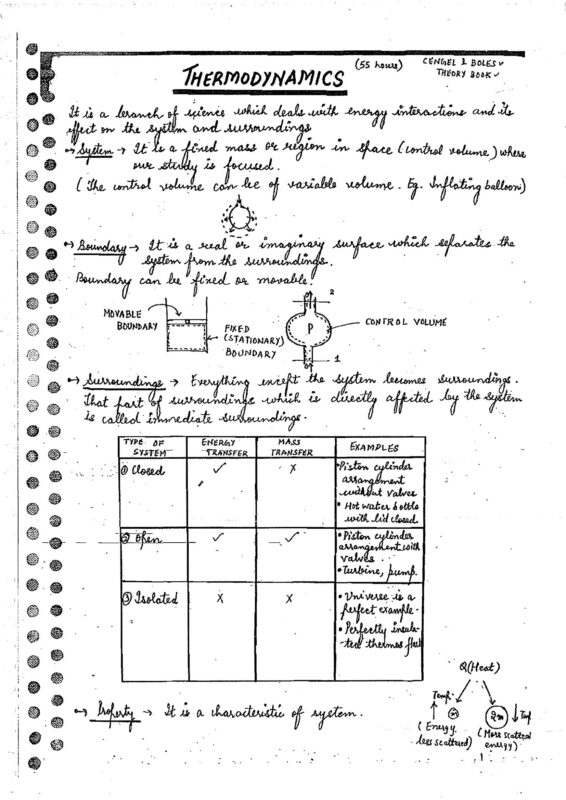 THERMODYNAMICS
(55 hours)
CENGEL & BOLES
THEORY BOOK
It is a branch of science which deals with energy interactions and its
effect on the system and surroundings
System → It is a fixed mass or region in space (control volume) where
our study is focused.
(The control volume can be of variable volume. Eg. Inflating balloon)
Boundary → It is a real or imaginary surface which separates the
system from the surroundings.
Boundary can be fixed or movable.
MOVABLE
BOUNDARY
FIXED
(STATIONARY)
BOUNDARY
2
P
CONTROL VOLUME
1
Surroundings → Everything except the system becomes surroundings.
That part of surroundings which is directly affected by the system
is called immediate surroundings.
TYPE OF
SYSTEM
ENERGY
TRANSFER
MASS
TRANSFER
EXAMPLES
① Closed
✓
X
• Piston cylinder
arrangement
without valves
• Hot water bottle
with lid closed
② Open
✓
✓
• Piston cylinder
arrangement with
valves
• Turbine, pump.
③ Isolated
X
X
• Universe is a
perfect example.
• Perfectly insula-
ted thermos flask
Property → It is a characteristic of system.
Q(Heat)
↑ Temp.
m
(Energy
less scattered)
2m
↓ Temp
(More scattered
energy)
1